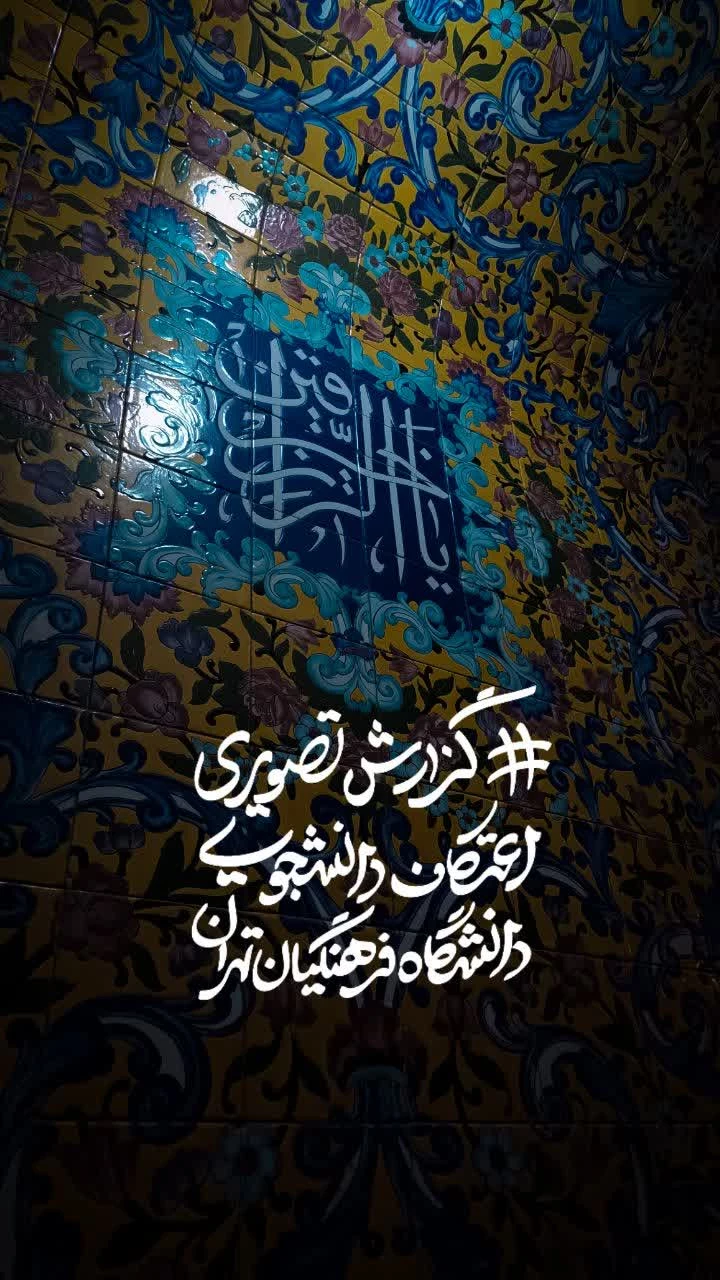 یا خیر الرازقین
#گزارش تصویری
اعتکاف دانشجویی
دانشگاه فرهنگیان تهران